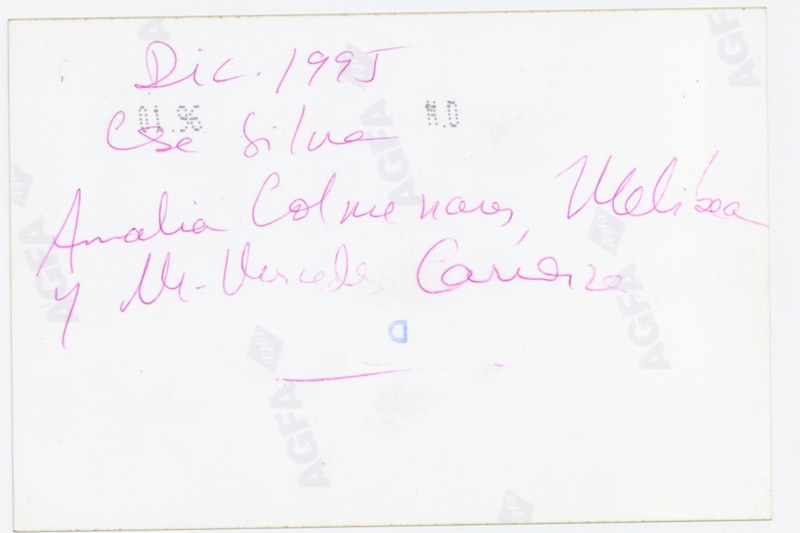 Dic. 1995
01.96 N.0
Cse Silva
Amalia Colmenares, Melibea
y M. Mercedes Carreiza
D
AGFA
AGFA
AGFA
AGFA
AGFA